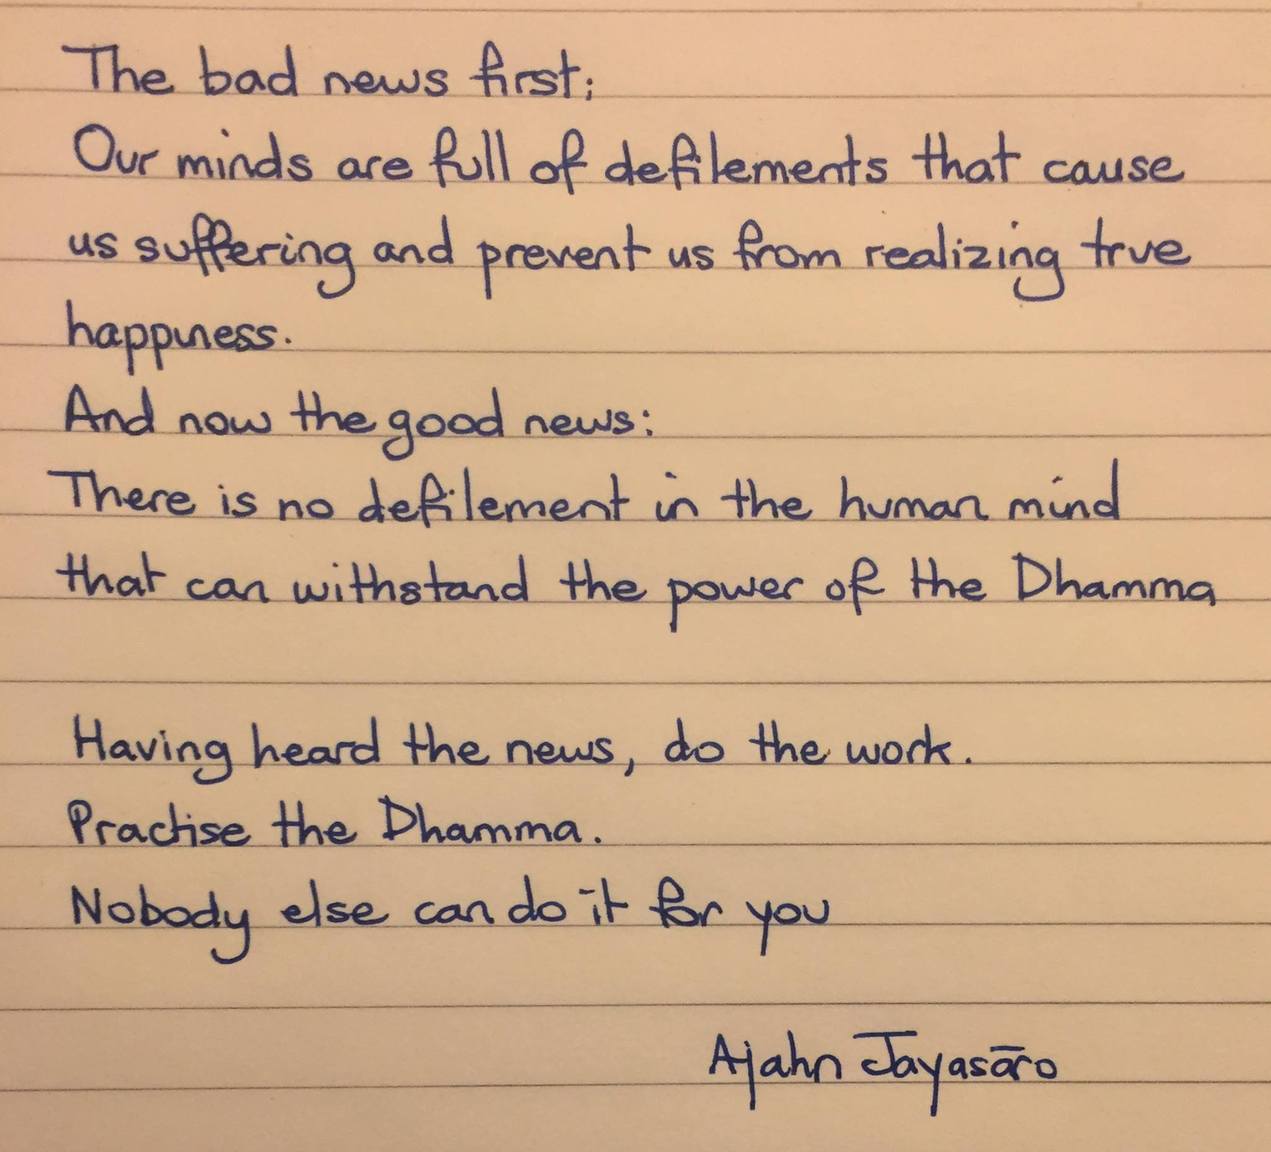 The bad news first;
Our minds are full of defilements that cause
us suffering and prevent us from realizing true
happiness.
And now the good news:
There is no defilement in the human mind
that can withstand the power of the Dhamma
Having heard the news, do the work.
Practise the Dhamma.
Nobody else can do it for you
Ajahn Jayasāro